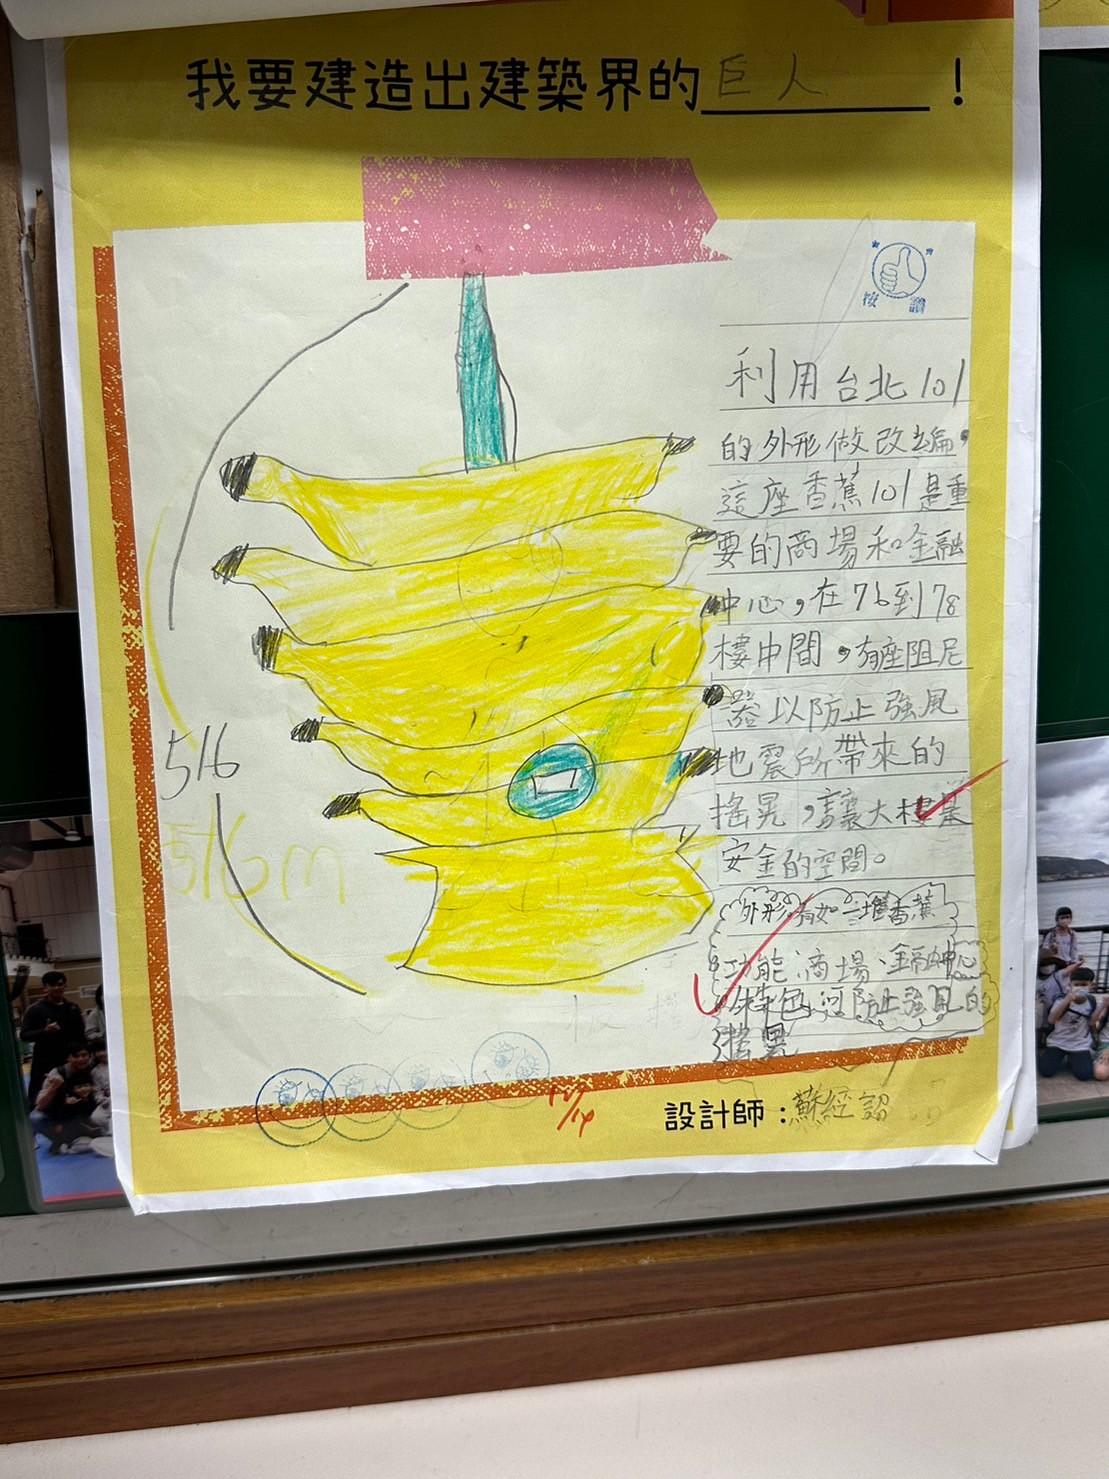 我要建造出建築界的巨人!
按讚
利用台北101
的外形做改編，
這座香蕉101是重
要的商場和金融
中心，在76到78
樓中間，有座阻尼
器以防止強風
地震所帶來的
搖晃，讓大樓是
安全的空間。
外形:有如一堆香蕉
功能:商場、金融中心
特色:可防止強風的
搖晃
516
516m
12/14
設計師:蘇經認